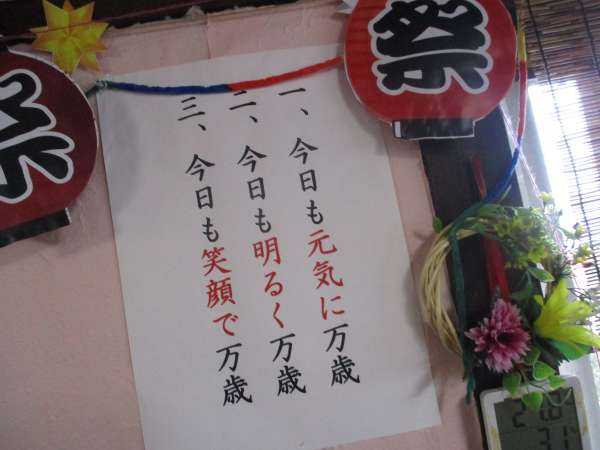 一、今日も元気に万歳
二、今日も明るく万歳
三、今日も笑顔で万歳
祭
祭